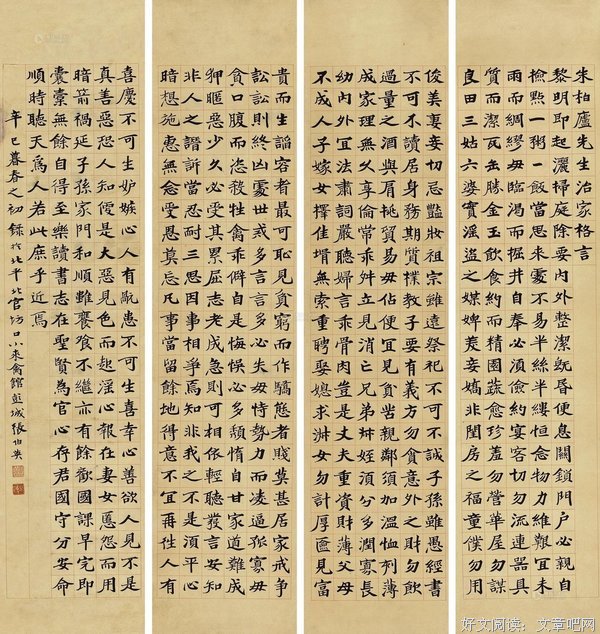 朱柏廬先生治家格言
黎明即起灑掃庭除要內外整潔既昏便息關鎖門戶必親自
撿點一粥一飯當思來處不易半絲半縷恒念物力維艱宜未
雨而綢繆毋臨渴而掘井自奉必須儉約宴客切勿流連器具
質而潔瓦缶勝金玉飲食約而精園蔬愈珍羞勿營華屋勿謀
良田三姑六婆實淫盜之媒婢美妾嬌非閨房之福童僕勿用
俊美妻妾切忌豔妝祖宗雖遠祭祀不可不誠子孫雖愚經書
不可不讀居身務期質樸教子要有義方勿貪意外之財勿飲
過量之酒與肩挑貿易毋佔便宜見貧苦親鄰須加溫恤刻薄
成家理無久享倫常乖舛立見消亡兄弟叔姪須分多潤寡長
幼內外宜法肅詞嚴聽婦言乖骨肉豈是丈夫重資財薄父母
不成人子嫁女擇佳壻無索重聘娶媳求淑女勿計厚匳見富
貴而生諂容者最可恥見貧窮而作驕態者賤莫甚居家戒爭
訟訟則終凶處世戒多言言多必失毋恃勢力而凌逼孤寡毋
貪口腹而恣殺牲禽乖僻自是悔悞必多頹惰自甘家道難成
狎暱惡少久必受其累屈志老成急則可相依輕聽發言安知
非人之譖訴當忍耐三思因事相爭焉知非我之不是須平心
暗想施惠無念受恩莫忘凡事當留餘地得意不宜再往人有
喜慶不可生妒嫉心人有禍患不可生喜幸心善欲人見不是
真善惡恐人知便是大惡見色而起淫心報在妻女匿怨而用
暗箭禍延子孫家門和順雖饔飧不繼亦有餘歡國課早完即
囊橐無餘自得至樂讀書志在聖賢為官心存君國守分安命
順時聽天為人若此庶乎近焉
辛巳暮春之初錄於北平北官坊口小來禽館彭城張伯英
好文阅读：文章吧网